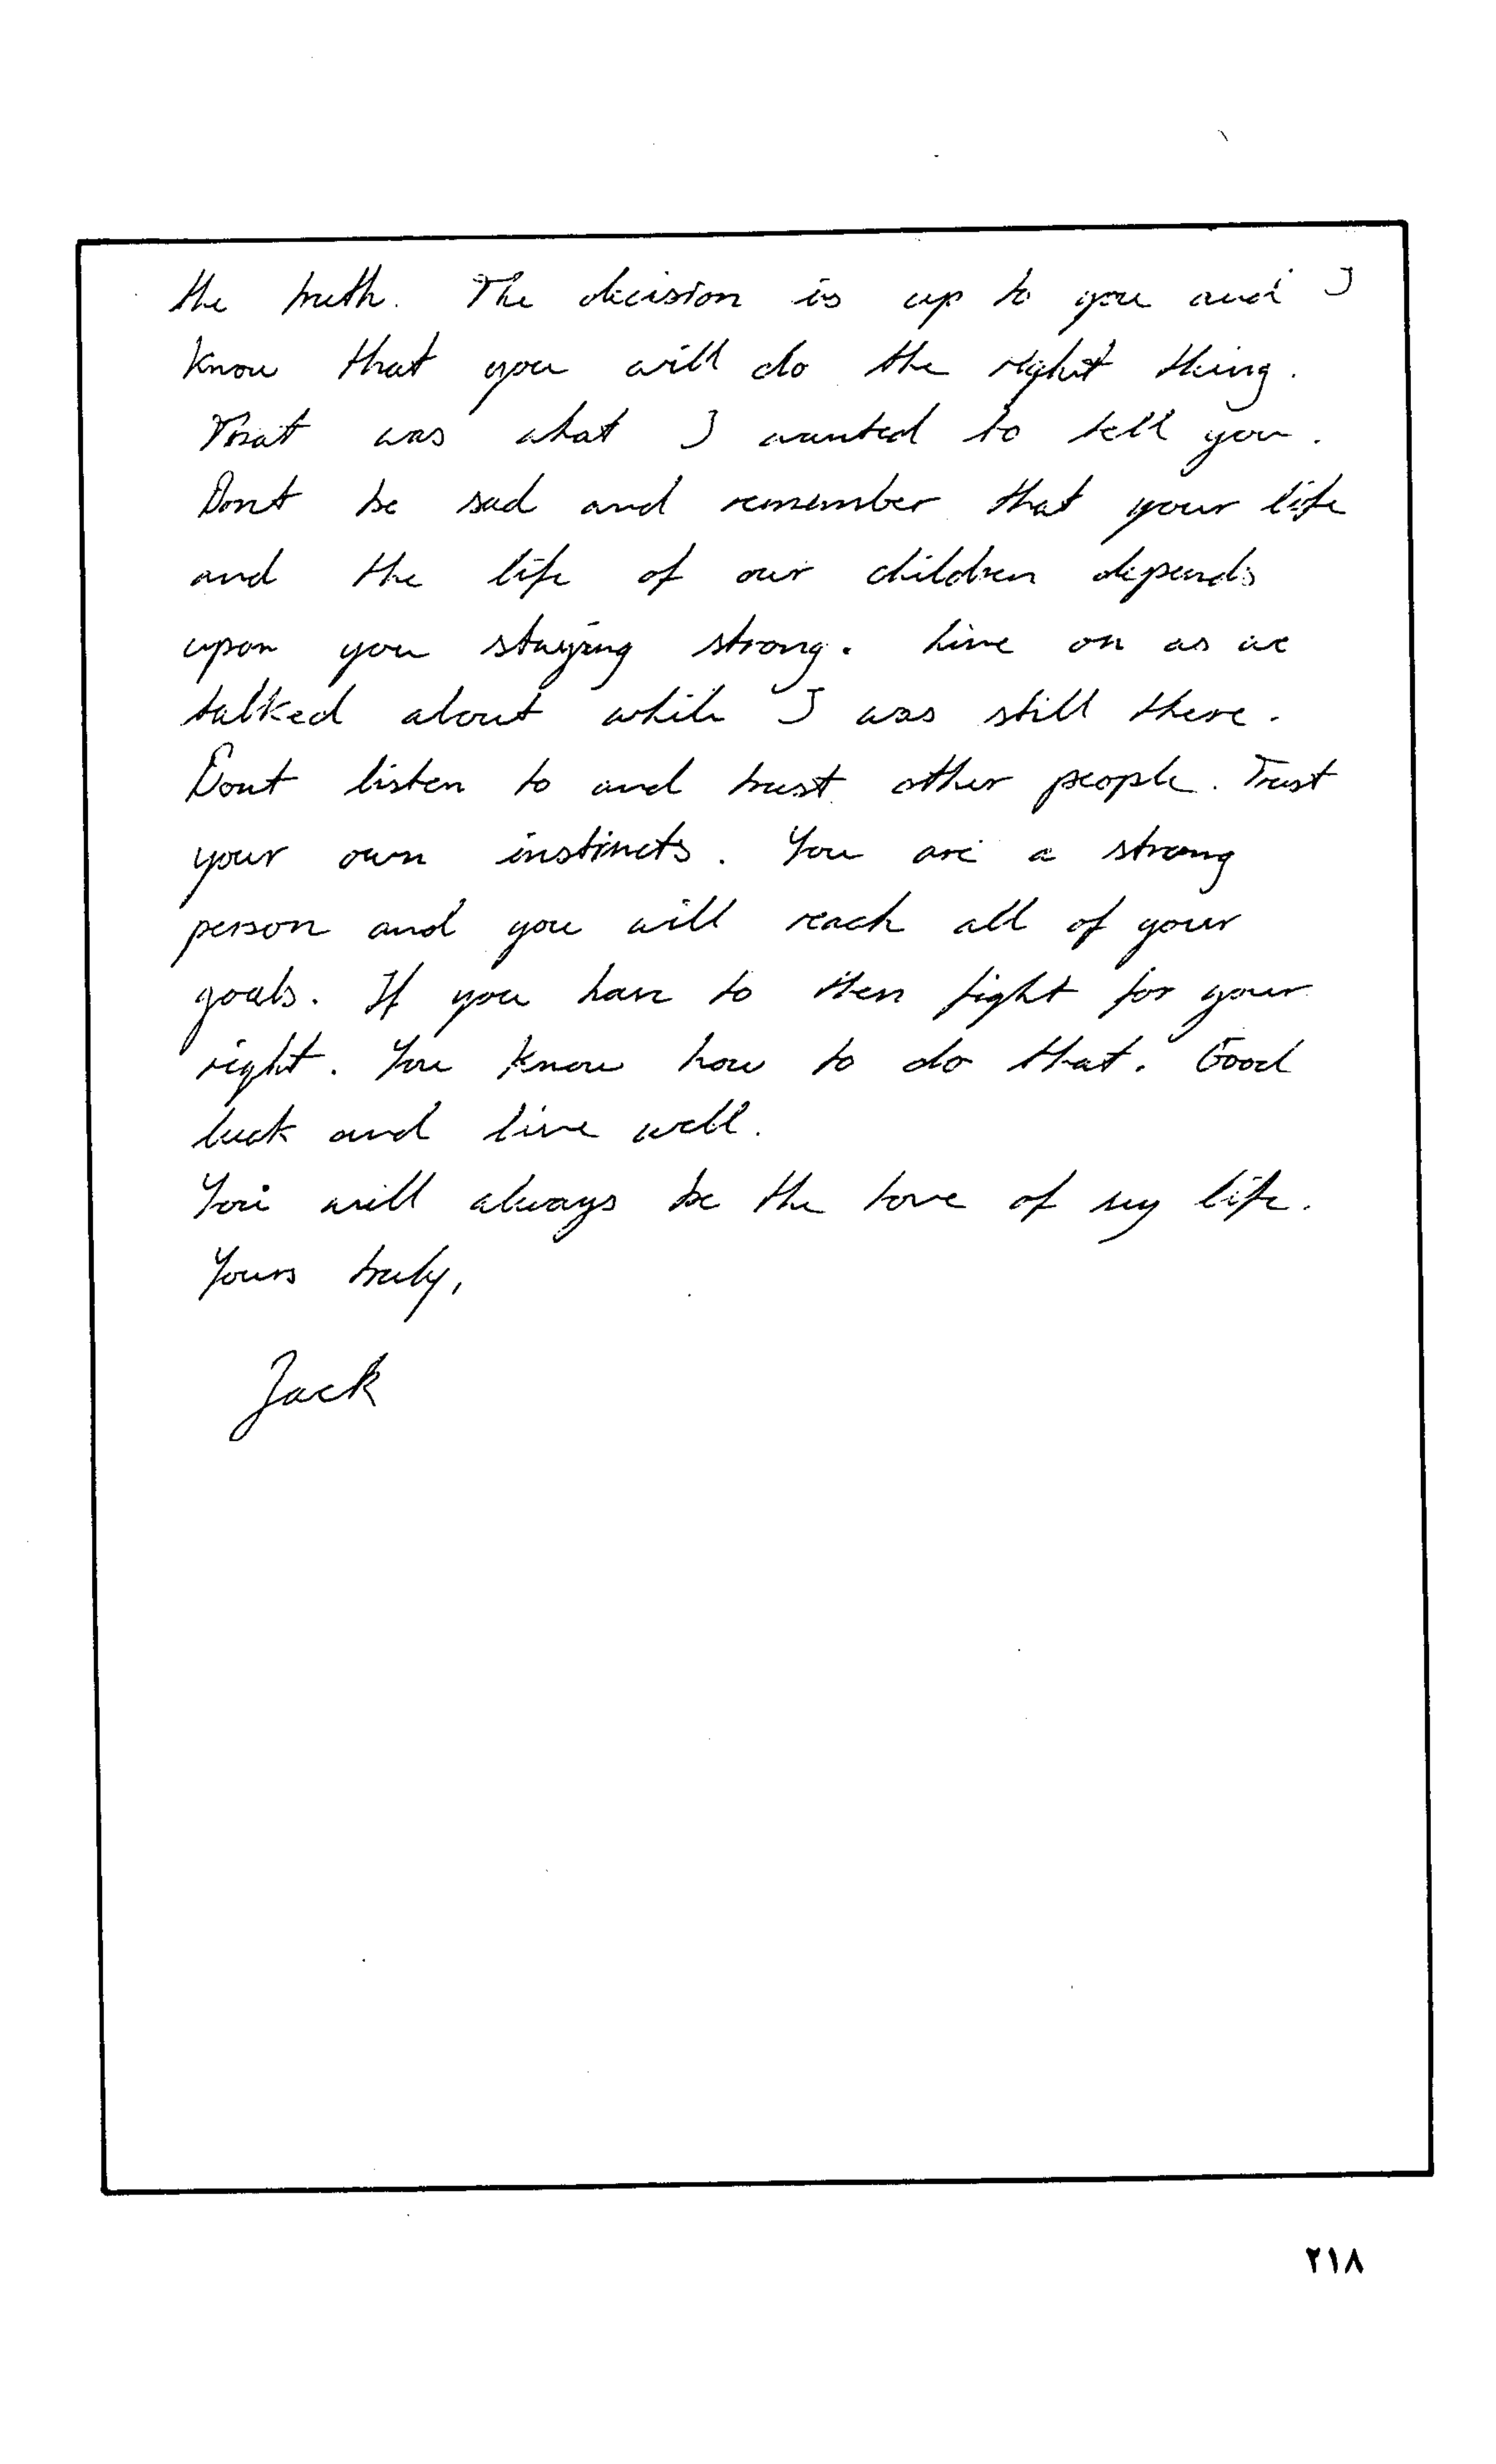 the truth. The decision is up to you and I
know that you will do the right thing.
That was what I wanted to tell you.
Dont be sad and remember that your life
and the life of our children depends
upon you staying strong. Live on as we
talked about while I was still there.
Dont listen to and trust other people. Trust
your own instincts. You are a strong
person and you will reach all of your
goals. If you have to then fight for your
right. You know how to do that. Good
luck and live well.
You will always be the love of my life.
Yours truly,
Jack
٢١٨